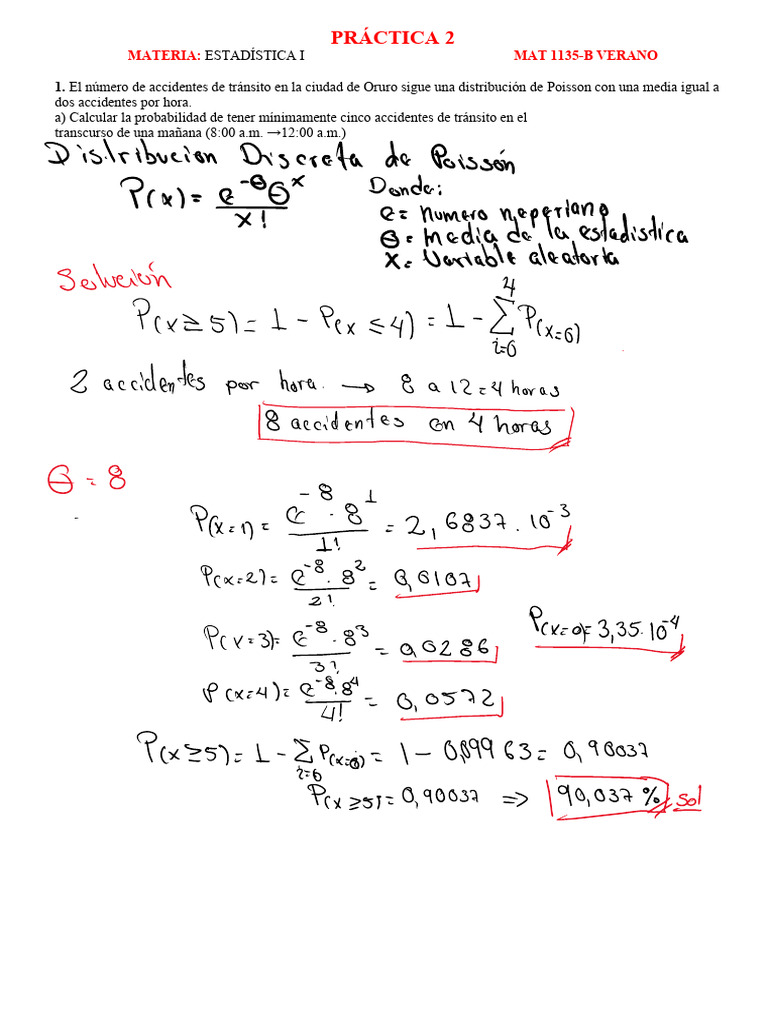 PRÁCTICA 2
MATERIA: ESTADÍSTICA I MAT 1135-B VERANO
1. El número de accidentes de tránsito en la ciudad de Oruro sigue una distribución de Poisson con una media igual a
dos accidentes por hora.
a) Calcular la probabilidad de tener mínimamente cinco accidentes de tránsito en el
transcurso de una mañana (8:00 a.m. →12:00 a.m.)
Distribucion Discreta de Poissón
P(x) = e^-θ θ^x / x!
Donde:
e = numero neperiano
θ = media de la estadistica
X = Variable aleatoria
Solución
P(x ≥ 5) = 1 - P(x ≤ 4) = 1 - Σ_{i=0}^{4} P(x=0)
2 accidentes por hora. → 8 a 12 = 4 horas
8 accidentes en 4 horas
θ = 8
P(x=1) = e^-8 · 8^1 / 1! = 2,6837 . 10^-3
P(x=2) = e^-8 · 8^2 / 2! = 0,0107
P(x=3) = e^-8 · 8^3 / 3! = 0,0286
P(x=0) = 3,35·10^-4
P(x=4) = e^-8 · 8^4 / 4! = 0,0572
P(x ≥ 5) = 1 - Σ_{i=0} P(x=0) = 1 - 0,09963 = 0,90037
P(x ≥ 5) = 0,90037 => 90,037 % Sol